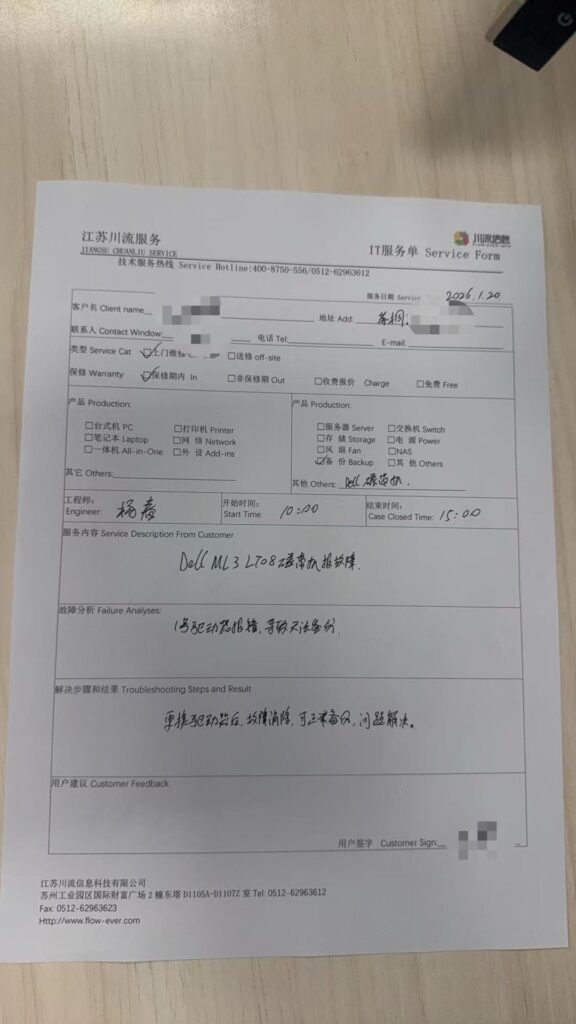 江苏川流服务
JIANGSU CHUANLIU SERVICE
川流信息
FLOW-EVER.COM
IT服务单 Service Form
技术服务热线 Service Hotline:400-8750-556/0512-62963612
服务日期 Service 2026.1.20
客户名 Client name 地址 Add:
联系人 Contact Window: 电话 Tel: E-mail:
类型 Service Cat ☑上门维修 ☐送修 off-site
保修 Warranty ☑保修期内 In ☐非保修期 Out ☐收费报价 Charge ☐免费 Free
产品 Production:
☐台式机 PC ☐打印机 Printer
☐笔记本 Laptop ☐网 络 Network
☐一体机 All-in-One ☐外 设 Add-ins
其它 Others:
产品 Production:
☐服务器 Server ☐交换机 Switch
☐存 储 Storage ☐电 源 Power
☐风 扇 Fan ☐NAS
☑备 份 Backup ☐其 他 Others
其他 Others: Dell 磁带机.
工程师: 开始时间: 结束时间:
Engineer: 杨 Start Time: 10:00 Case Closed Time: 15:00
服务内容 Service Description From Customer
Dell ML3 LTO8磁带机报故障.
故障分析 Failure Analyses:
1号驱动器报错,导致无法备份.
解决步骤和结果 Troubleshooting Steps and Result
更换驱动器后,故障消除,可正常备份,问题解决。
用户建议 Customer Feedback
用户签字 Customer Sign:
江苏川流信息科技有限公司
苏州工业园区国际财富广场 2 幢东塔 D1105A-D1107Z 室 Tel: 0512-62963612
Fax: 0512-62963623
Http://www.flow-ever.com